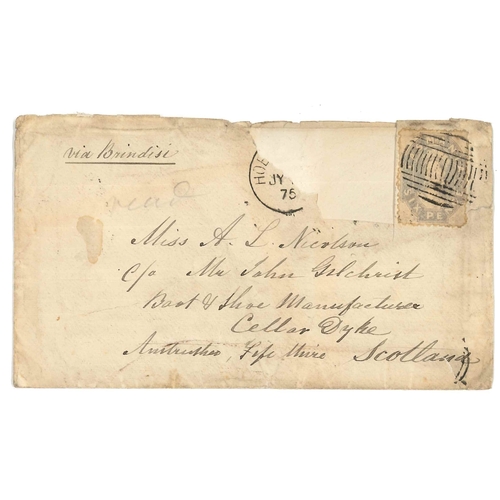 via Brindisi
read
HOB
JY
75
PE
Miss A. L. Nicolson
C/o Mr John Gilchrist
Boot & Shoe Manufacturer
Cellar Dyke
Anstruther, Fife Shire Scotland